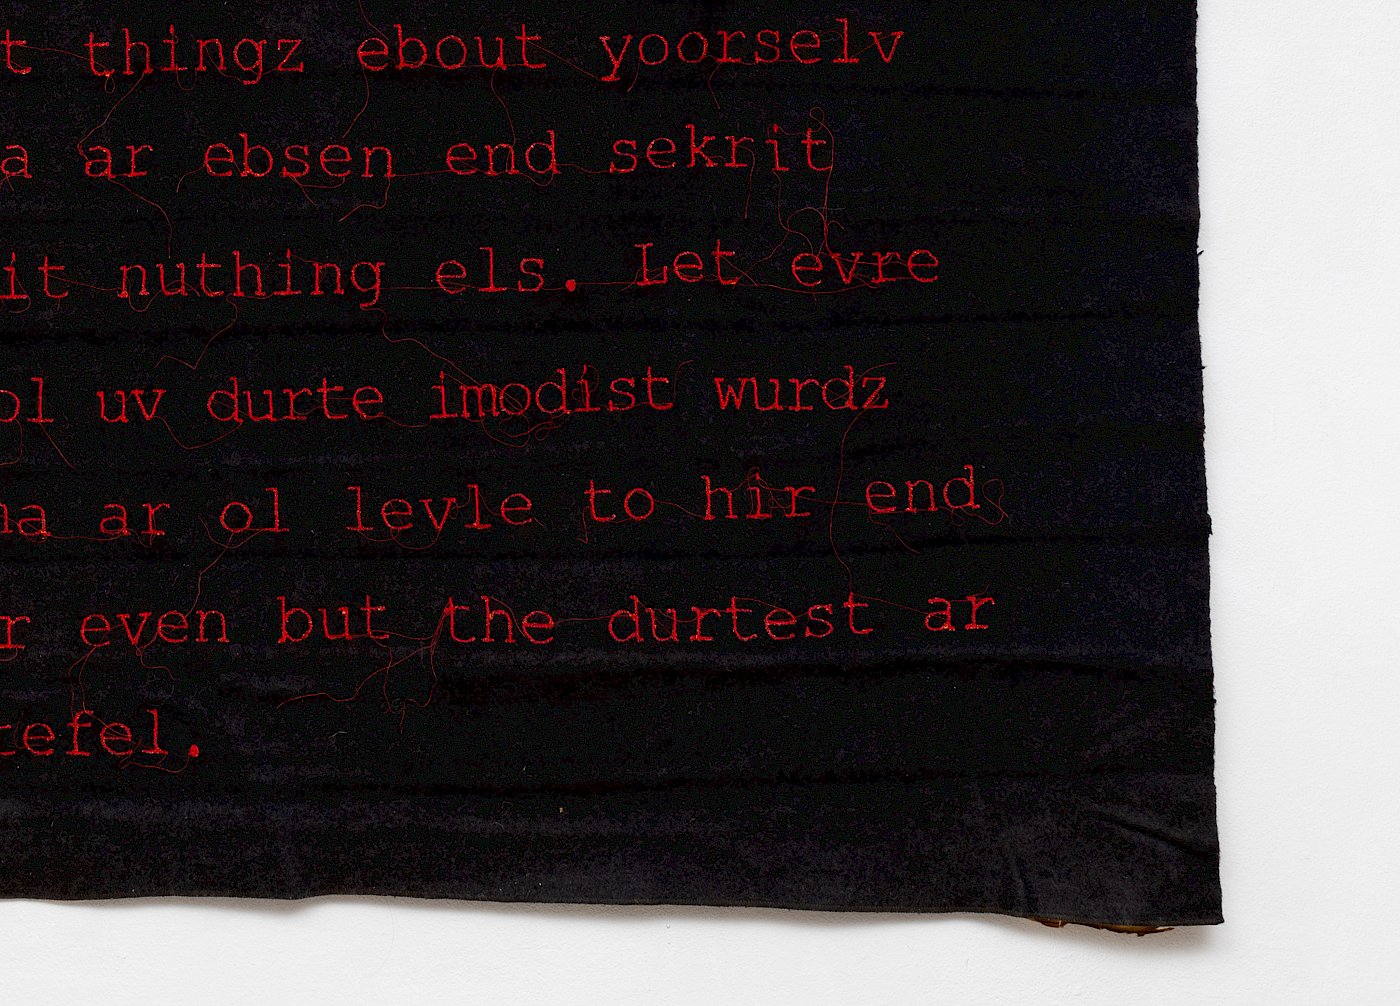 t thingz ebout yoorselv
a ar ebsen end sekrit
it nuthing els. Let evre
ol uv durte imodist wurdz
ha ar ol levle to hir end
r even but the durtest ar
tefel.